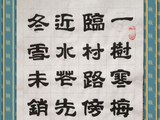 一樹寒梅
臨村路傍
近水花先
冬雪未銷